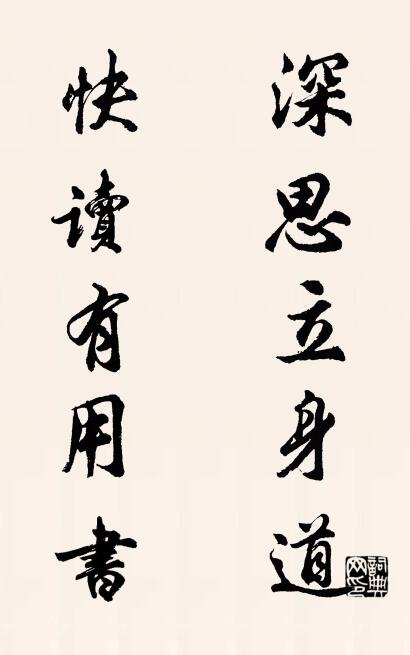 深思立身道
快讀有用書
詞典網印